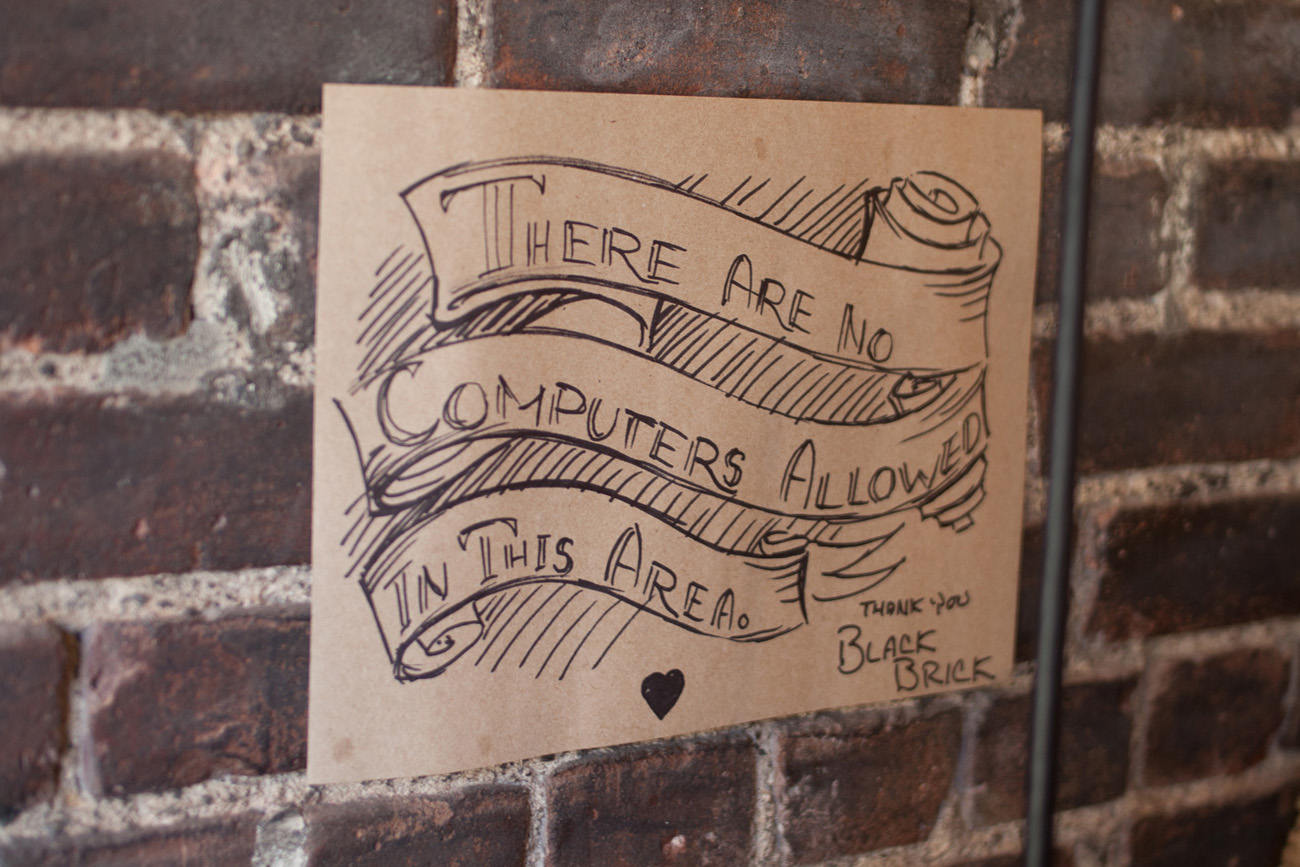 There Are No
Computers Allowed
In This Area.
Thank you
Black
Brick